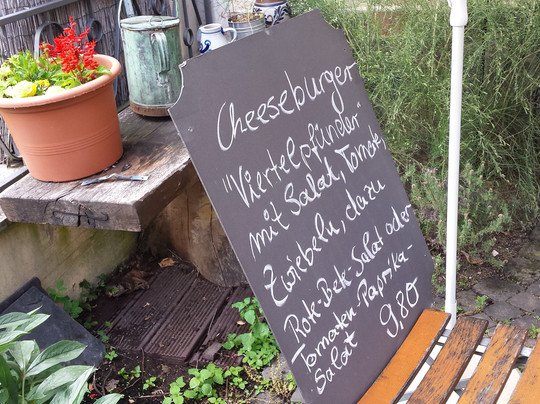 Cheeseburger
"Viertelpfünder"
mit Salat, Tomate,
Zwiebeln, dazu
Rote-Bete-Salat oder
Tomaten-Paprika-
Salat 9,80